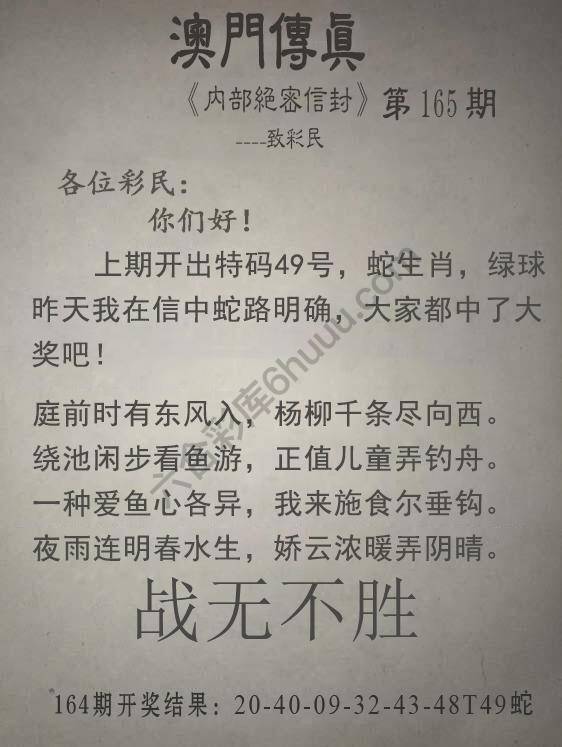 澳門傳眞
《内部絕密信封》第165期
----致彩民
各位彩民：
你们好！
上期开出特码49号，蛇生肖，绿球
昨天我在信中蛇路明确，大家都中了大
奖吧！
庭前时有东风入，杨柳千条尽向西。
绕池闲步看鱼游，正值儿童弄钓舟。
一种爱鱼心各异，我来施食尔垂钩。
夜雨连明春水生，娇云浓暖弄阴晴。
战无不胜
164期开奖结果：20-40-09-32-43-48T49蛇
六合彩库6huuu.com